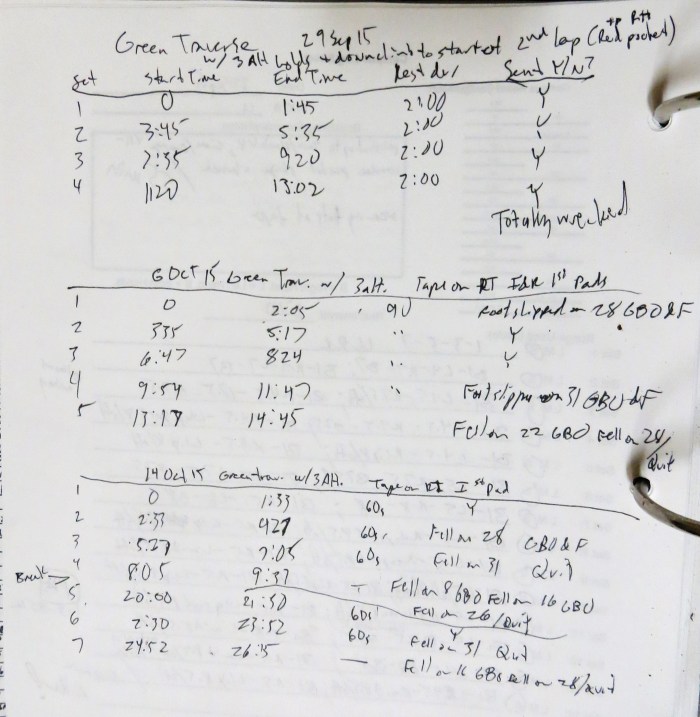 Green Traverse 29 Sep 15 2nd lap (Red pocket)
w/ 3 Alt holds + downclimb to start of
Set Start Time End Time Rest dur Sent Y/N?
1 0 1:45 2:00 Y
2 3:45 5:35 2:00
3 7:35 920 2:00 Y
4 1120 13:02 2:00 Y
Totally wrecked
6 Oct 15 Green Trav. w/ 3 alt. Tape on RT I&R 1st Pads
1 0 2:05 90 Foot slipped on 28 GBO&F
2 335 5:17 " Y
3 6:47 824 " Y
4 9:54 11:47 " Foot slipped on 31 GBO&F
5 13:17 14:45 Fell on 22 GBO Fell on 28/
Quit
14 Oct 15 Green trav. w/ 3 Alt. Tape on RT I 1st Pad
1 0 1:33 60s Y
2 2:33 427 60s Fell on 28 GBO&F
3 5:27 7:05 60s Fell on 31 Quit
4 8:05 9:37 - Fell on 8 GBO Fell on 16 GBO
Break >
5 20:00 21:30 60s Fell on 26/Quit
6 2:30 23:52 60s Y Fell on 31 Quit
7 24:52 26:15 — Fell on 16 GBO Fell on 28/Quit